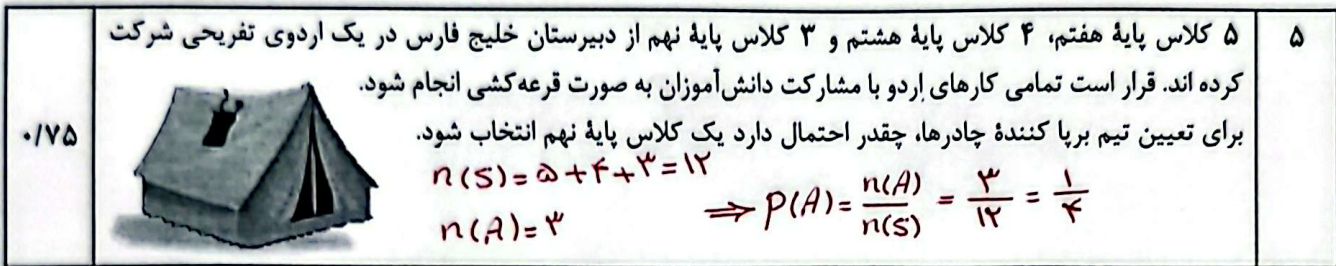 ۵
۵ کلاس پایهٔ هفتم، ۴ کلاس پایهٔ هشتم و ۳ کلاس پایهٔ نهم از دبیرستان خلیج فارس در یک اردوی تفریحی شرکت
کرده اند. قرار است تمامی کارهای اِردو با مشارکت دانش‌آموزان به صورت قرعه‌کشی انجام شود.
برای تعیین تیم برپا کنندهٔ چادرها، چقدر احتمال دارد یک کلاس پایهٔ نهم انتخاب شود.
۰/۷۵
n(S) = ۵+۴+۳=۱۲
n(A) = ۳
⇒ P(A) = n(A)/n(S) = ۳/۱۲ = ۱/۴